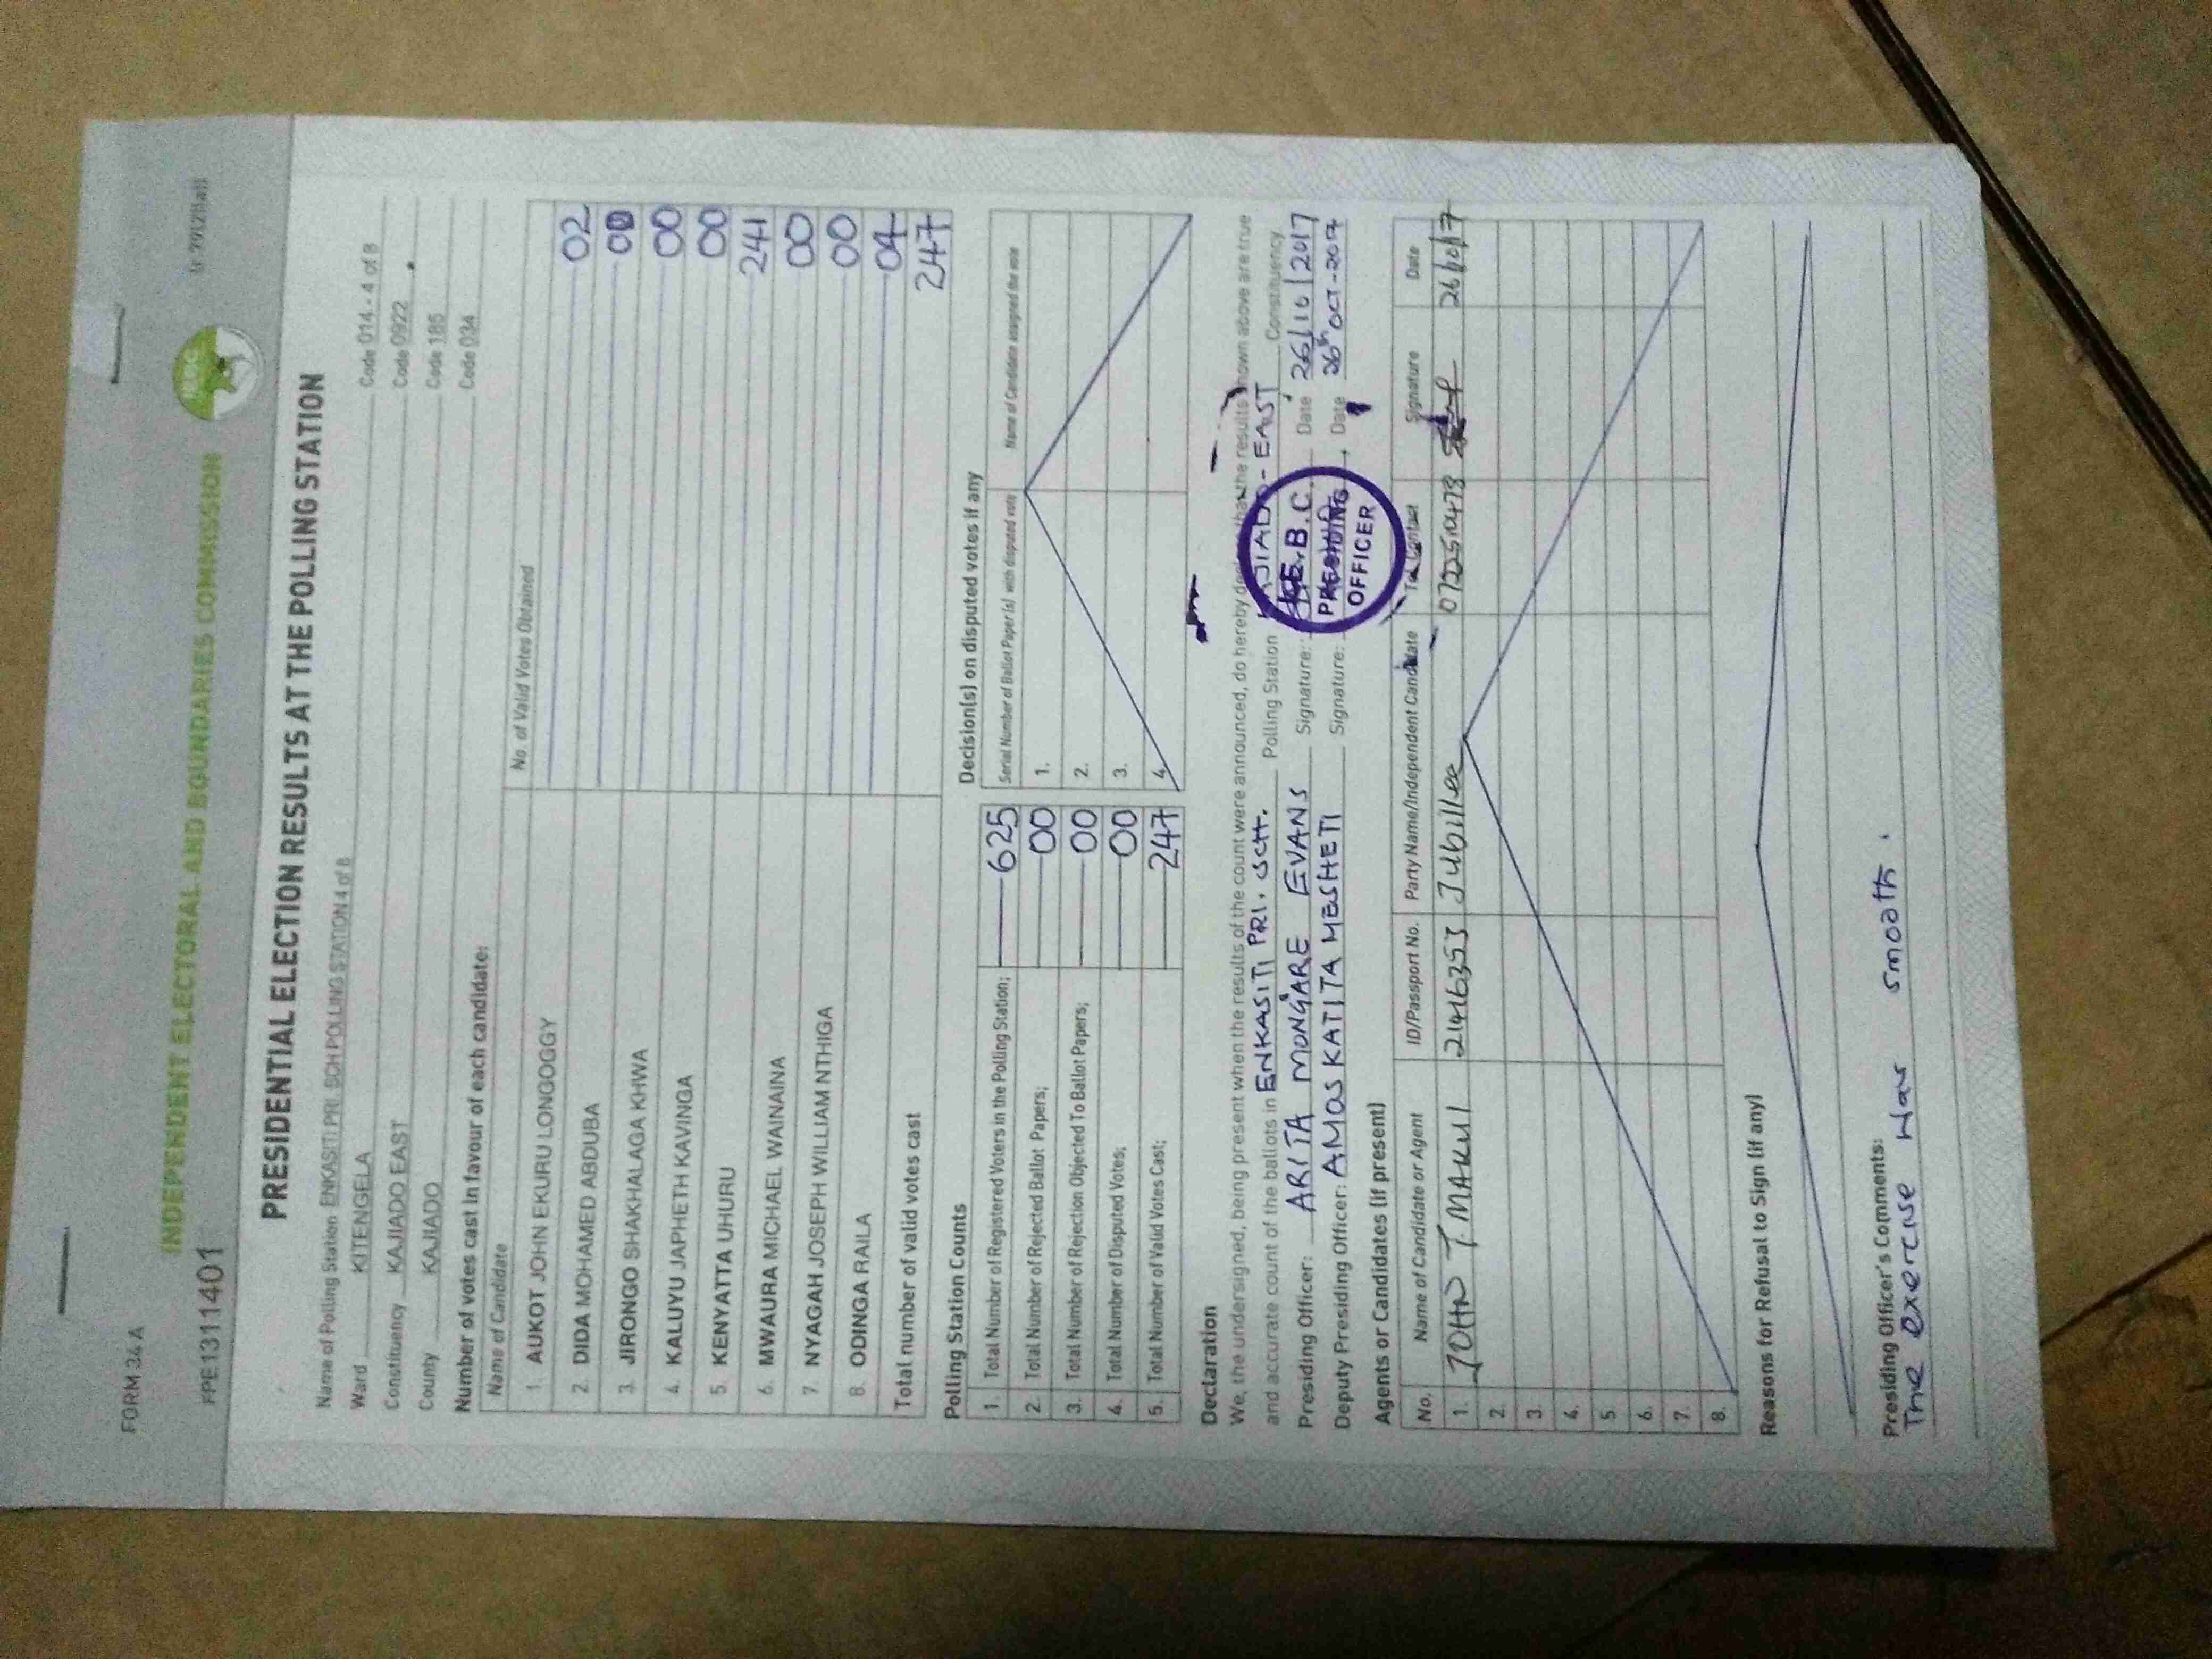 FORM 34A
INDEPENDENT ELECTORAL AND BOUNDARIES COMMISSION
IEBC
FPE1311401
PRESIDENTIAL ELECTION RESULTS AT THE POLLING STATION
Name of Polling Station ENKASITI PRI SCH POLLING STATION 4 of 8 Code 014 - 4 of 8
Ward KITENGELA Code 0922
Constituency KAJIADO EAST Code 185
County KAJIADO Code 034
Number of votes cast in favour of each candidate:
Name of Candidate No. of Valid Votes Obtained
1. AUKOT JOHN EKURU LONGOGGY 02
2. DIDA MOHAMED ABDUBA 00
3. JIRONGO SHAKHALAGA KHWA 00
4. KALUYU JAPHETH KAVINGA 00
5. KENYATTA UHURU 241
6. MWAURA MICHAEL WAINAINA 00
7. NYAGAH JOSEPH WILLIAM NTHIGA 00
8. ODINGA RAILA 04
Total number of valid votes cast 247
Polling Station Counts
1. Total Number of Registered Voters in the Polling Station; 625
2. Total Number of Rejected Ballot Papers; 00
3. Total Number of Rejection Objected To Ballot Papers; 00
4. Total Number of Disputed Votes; 00
5. Total Number of Valid Votes Cast; 247
Decision(s) on disputed votes if any
Serial Number of Ballot Paper(s) with disputed vote Name of Candidate assigned the vote
1.
2.
3.
4.
Declaration
We, the undersigned, being present when the results of the count were announced, do hereby declare that the results shown above are true
and accurate count of the ballots in ENKASITI PRI. SCH. Polling Station KAJIADO - EAST Constituency
Presiding Officer: ARITA MONGARE EVANS Signature: Date 26/10/2017
Deputy Presiding Officer: AMOS KATITA MESHETI Signature: Date 26th OCT-2017
I.E.B.C.
PRESIDING
OFFICER
Agents or Candidates (if present)
No. Name of Candidate or Agent ID/Passport No. Party Name/Independent Candidate Tel. Contact Signature Date
1. JOHN T. MAKUI 21416353 Jubillee 26/10/17
2.
3.
4.
5.
6.
7.
8.
Reasons for Refusal to Sign (if any)
Presiding Officer's Comments:
The exercise was smooth.